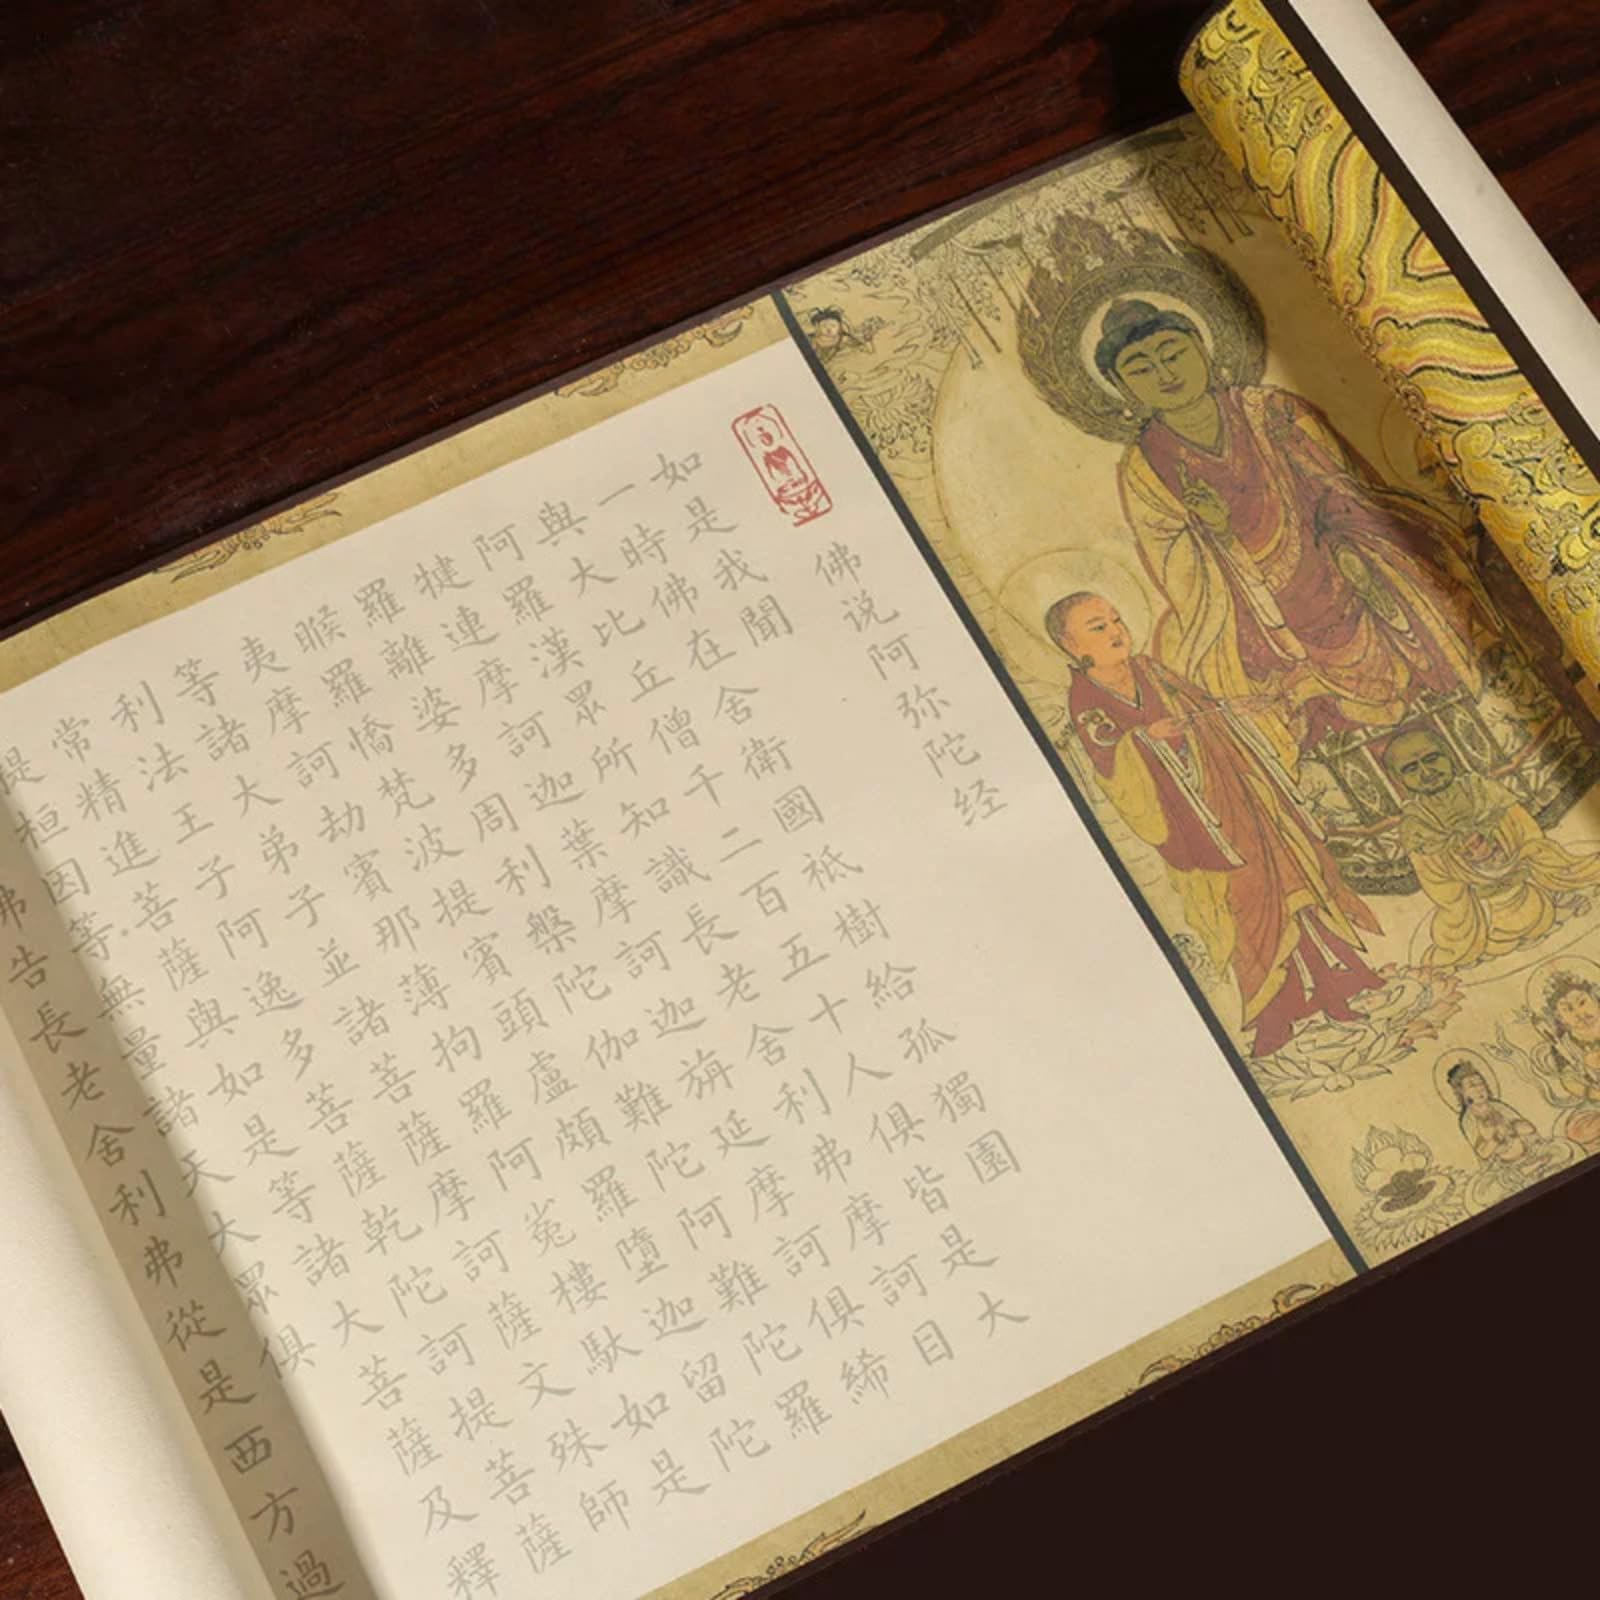 佛说阿弥陀经
如是我聞
一時佛在舍衛國祇樹給孤獨園
與大比丘僧千二百五十人俱皆是大
阿羅漢眾所知識長老舍利弗摩訶目
犍連摩訶迦葉摩訶迦旃延摩訶俱絺
羅離婆多周利槃陀伽難陀阿難陀羅
睺羅憍梵波提賓頭盧頗羅墮迦留陀
夷摩訶劫賓那薄拘羅阿㝹樓馱如是
等諸大弟子並諸菩薩摩訶薩文殊師
利法王子阿逸多菩薩乾陀訶提菩薩
常精進菩薩與如是等諸大菩薩及釋
提桓因等無量諸天大眾俱
佛告長老舍利弗從是西方過